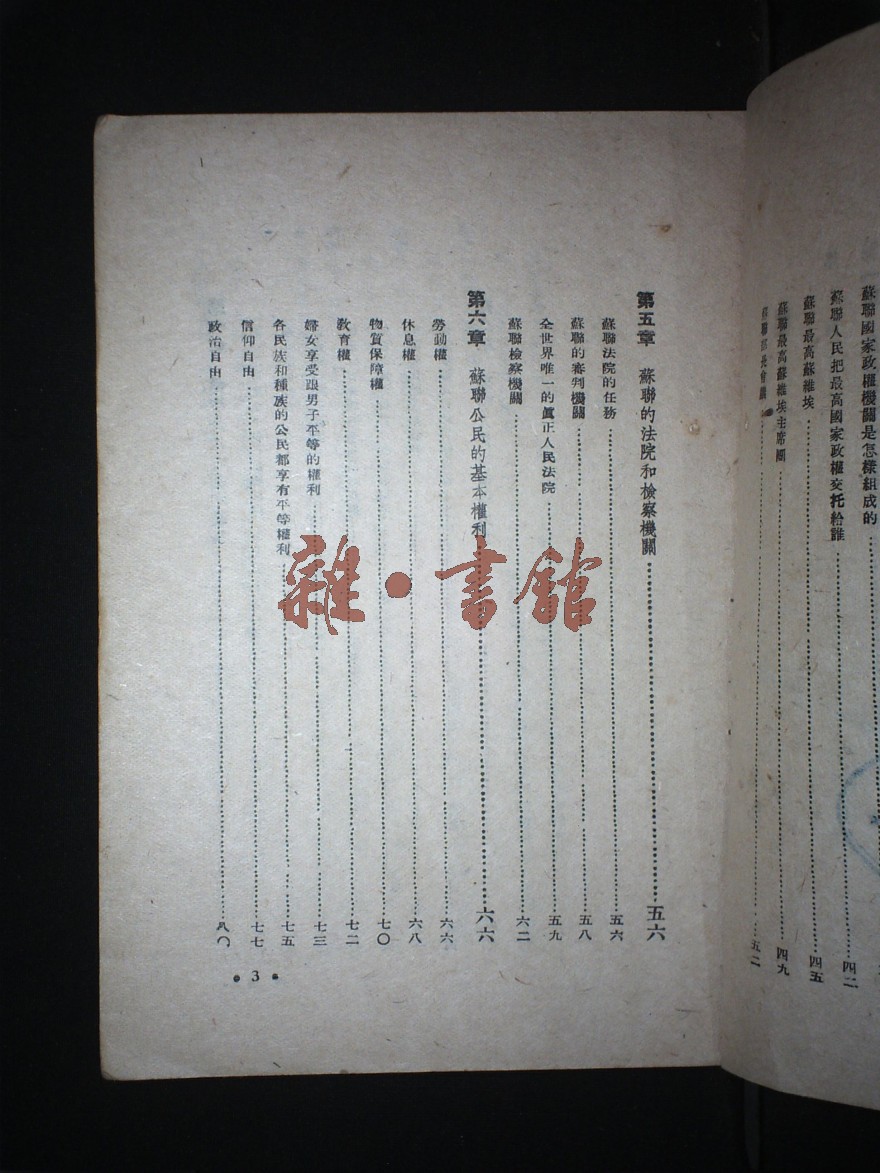 蘇聯國家政權機關是怎樣組成的
蘇聯人民把最高國家政權交托給誰……四二
蘇聯最高蘇維埃……四五
蘇聯最高蘇維埃主席團……四九
蘇聯部長會議……五二
第五章 蘇聯的法院和檢察機關……五六
蘇聯法院的任務……五六
蘇聯的審判機關……五八
全世界唯一的眞正人民法院……五九
蘇聯檢察機關……六二
第六章 蘇聯公民的基本權利……六六
勞動權……六六
休息權……六八
物質保障權……七〇
敎育權……七二
婦女享受跟男子平等的權利……七三
各民族和種族的公民都享有平等權利……七五
信仰自由……七七
政治自由……八〇
• 3 •
雜·書館